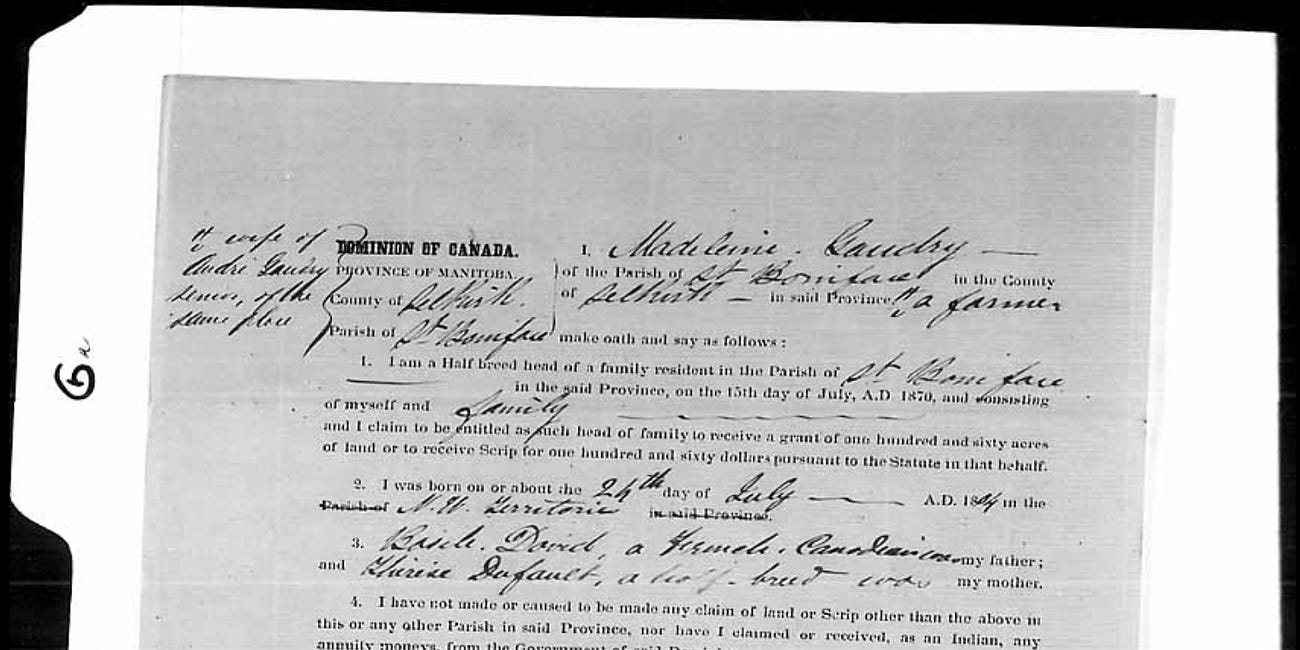 wife of
André Gaudry
senior, of the
same place
DOMINION OF CANADA.
PROVINCE OF MANITOBA.
County of Selkirk.
Parish of St Boniface
I, Madeleine Gaudry
of the Parish of St Boniface in the County
of Selkirk in said Province, a farmer
make oath and say as follows:
1. I am a Half breed head of a family resident in the Parish of St Boniface
in the said Province, on the 15th day of July, A.D. 1870, and consisting
of myself and family
and I claim to be entitled as such head of family to receive a grant of one hundred and sixty acres
of land or to receive Scrip for one hundred and sixty dollars pursuant to the Statute in that behalf.
2. I was born on or about the 24th day of July A.D. 1804 in the
Parish of N.W. Territories in said Province.
3. Basile David, a French Canadian was my father;
and Thérise Dufault, a half-breed was my mother.
4. I have not made or caused to be made any claim of land or Scrip other than the above in
this or any other Parish in said Province, nor have I claimed or received, as an Indian, any
annuity moneys, from the Government of said
6